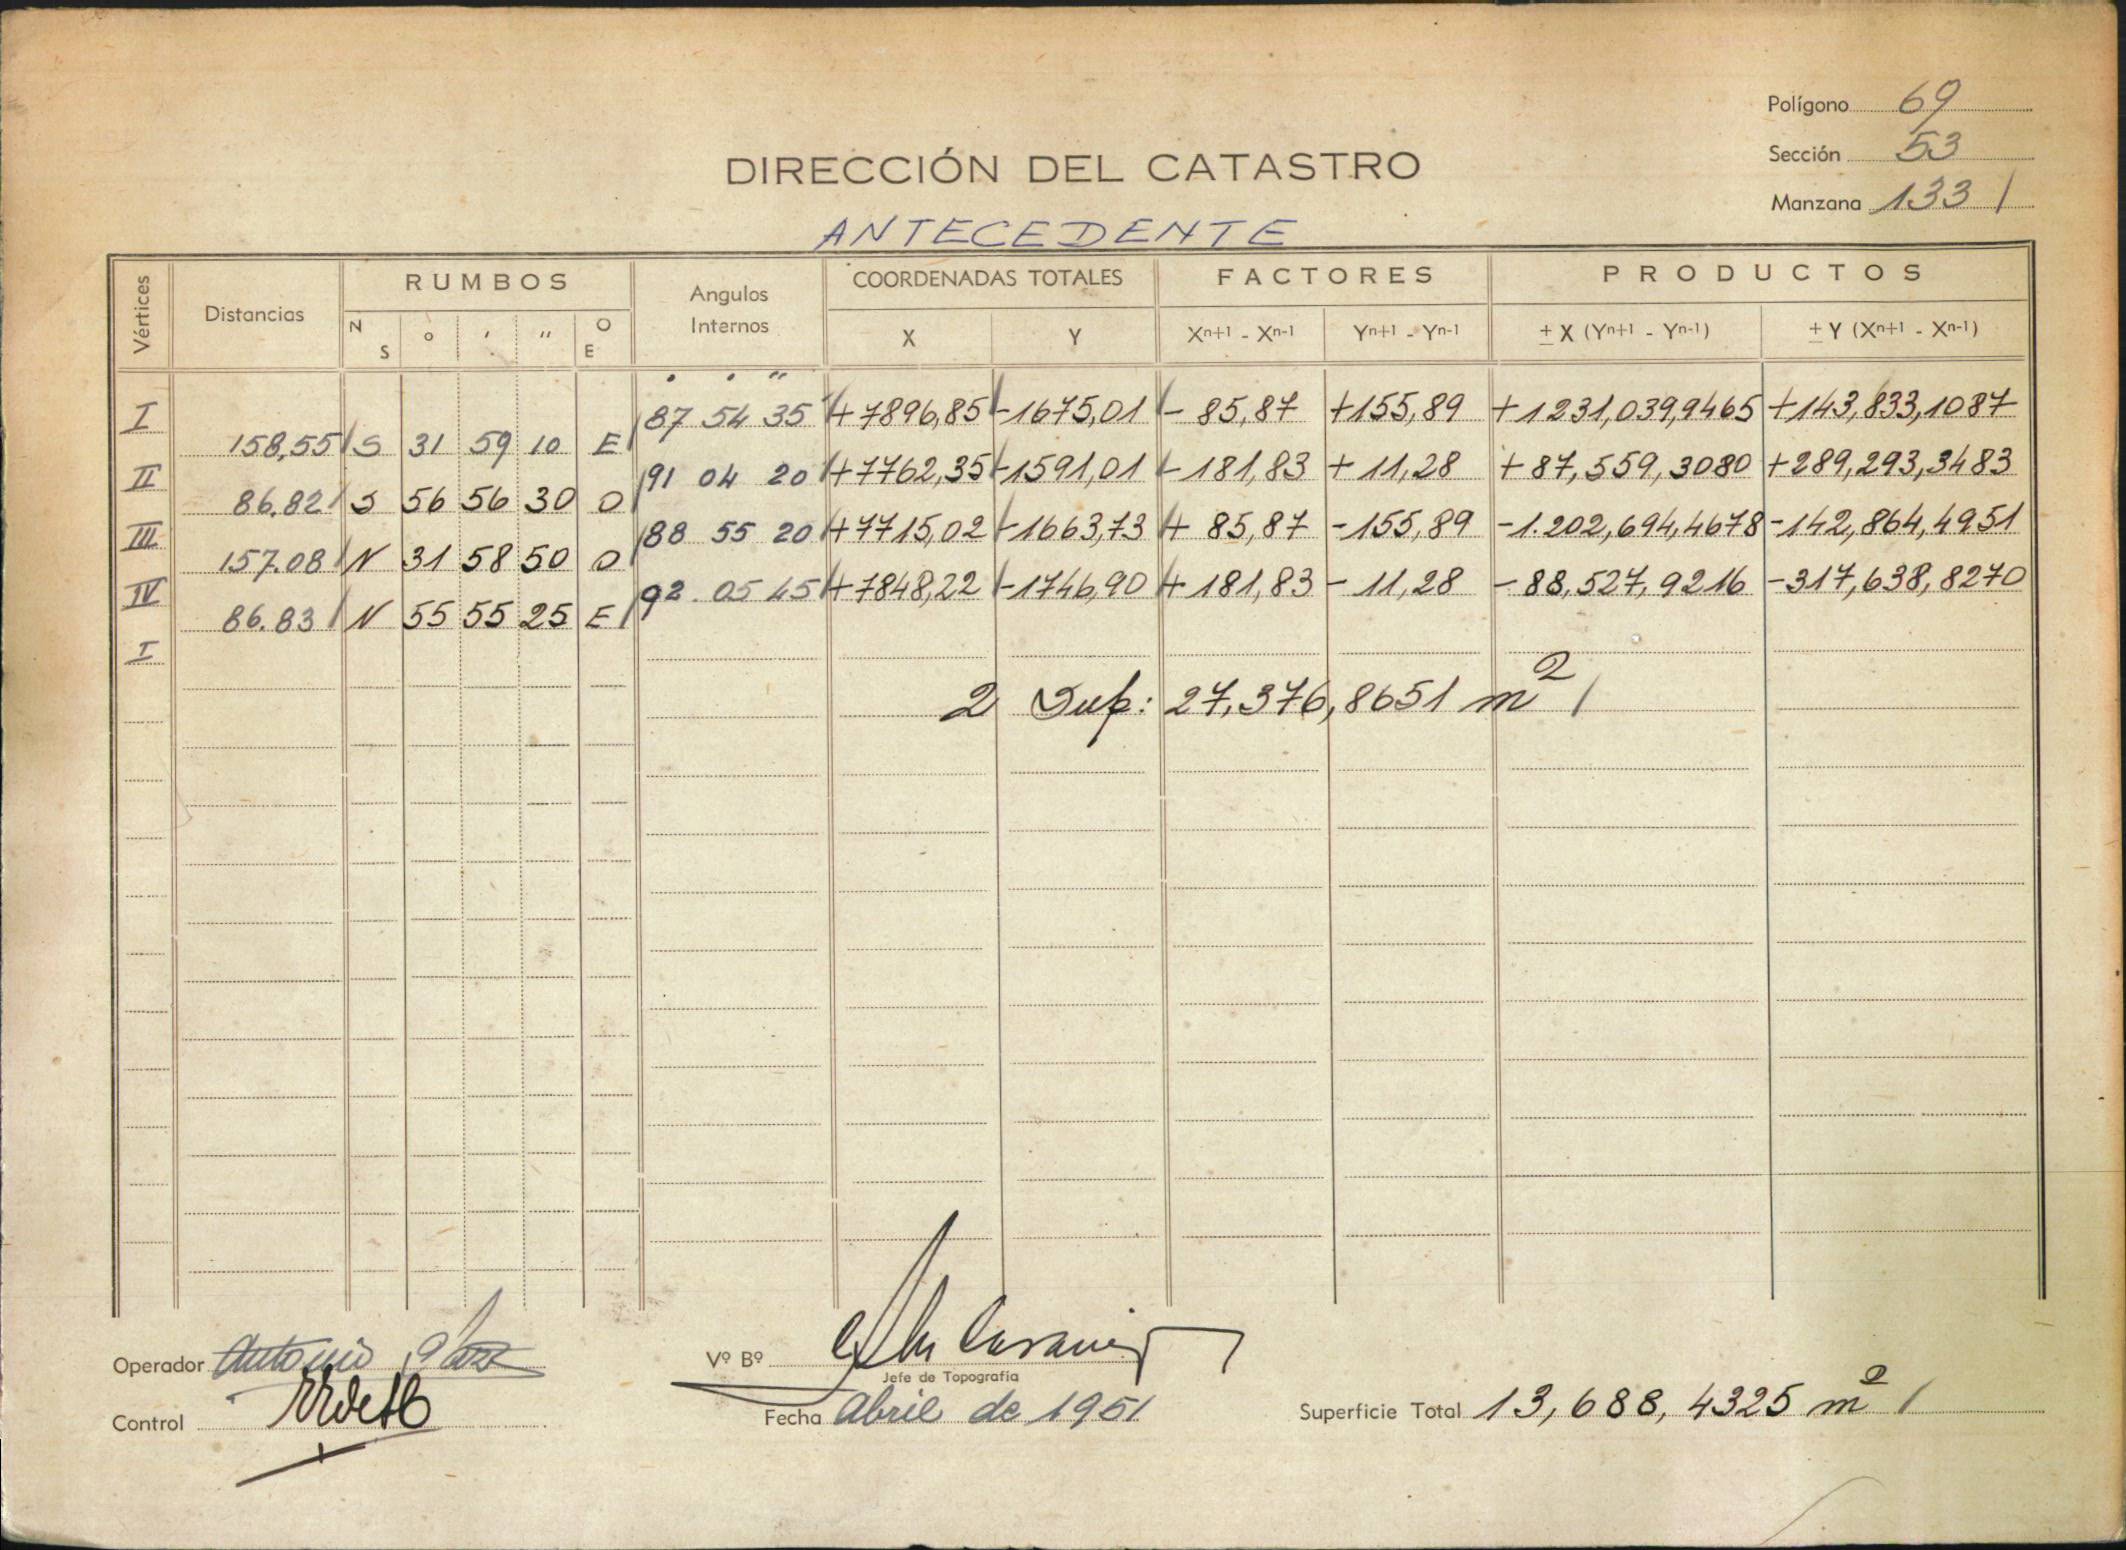 Polígono 69
Sección 53
Manzana 133 /
DIRECCIÓN DEL CATASTRO
ANTECEDENTE
Vértices Distancias RUMBOS Angulos Internos COORDENADAS TOTALES FACTORES PRODUCTOS
N S ° ' " O E X Y Xn+1 - Xn-1 Yn+1 - Yn-1 ± X (Yn+1 - Yn-1) ± Y (Xn+1 - Xn-1)
I 87 54 35 +7896,85 -1675,01 - 85,87 +155,89 +1231,039,9465 +143,833,1087
158,55 S 31 59 10 E
II 91 04 20 +7762,35 -1591,01 - 181,83 + 11,28 +87,559,3080 +289,293,3483
86.82 S 56 56 30 O
III 88 55 20 +7715,02 -1663,73 + 85,87 -155,89 -1.202,694,4678 -142,864,4951
157.08 N 31 58 50 O
IV 92 05 45 +7848,22 -1746,90 + 181,83 - 11,28 -88,527,9216 -317,638,8270
86.83 N 55 55 25 E
I
2 Sup: 27,376,8651 m2 /
Operador Antonio
Vº Bº
Jefe de Topografía
Control
Fecha Abril de 1951
Superficie Total 13,688,4325 m2 /